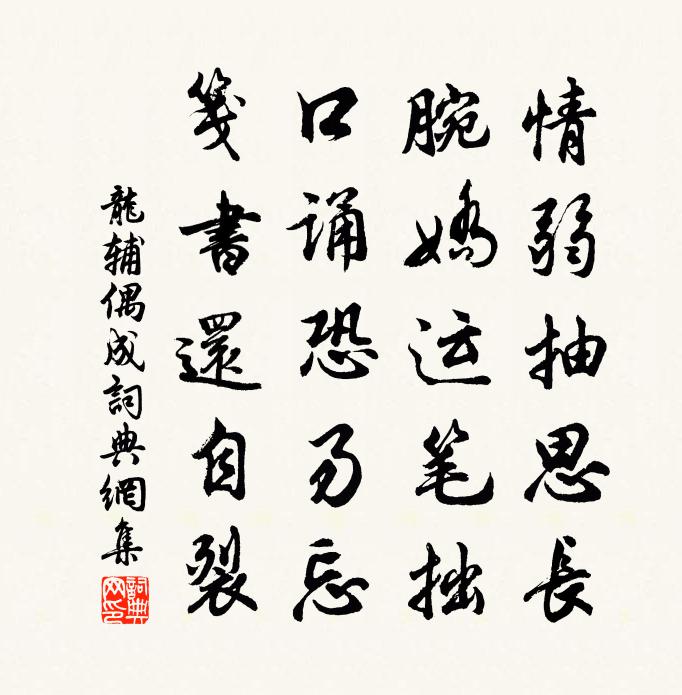 情弱抽思長
腕嬌运笔拙
口诵恐易忘
箋書還自裂
龍辅偶成詞典網集
詞典网印